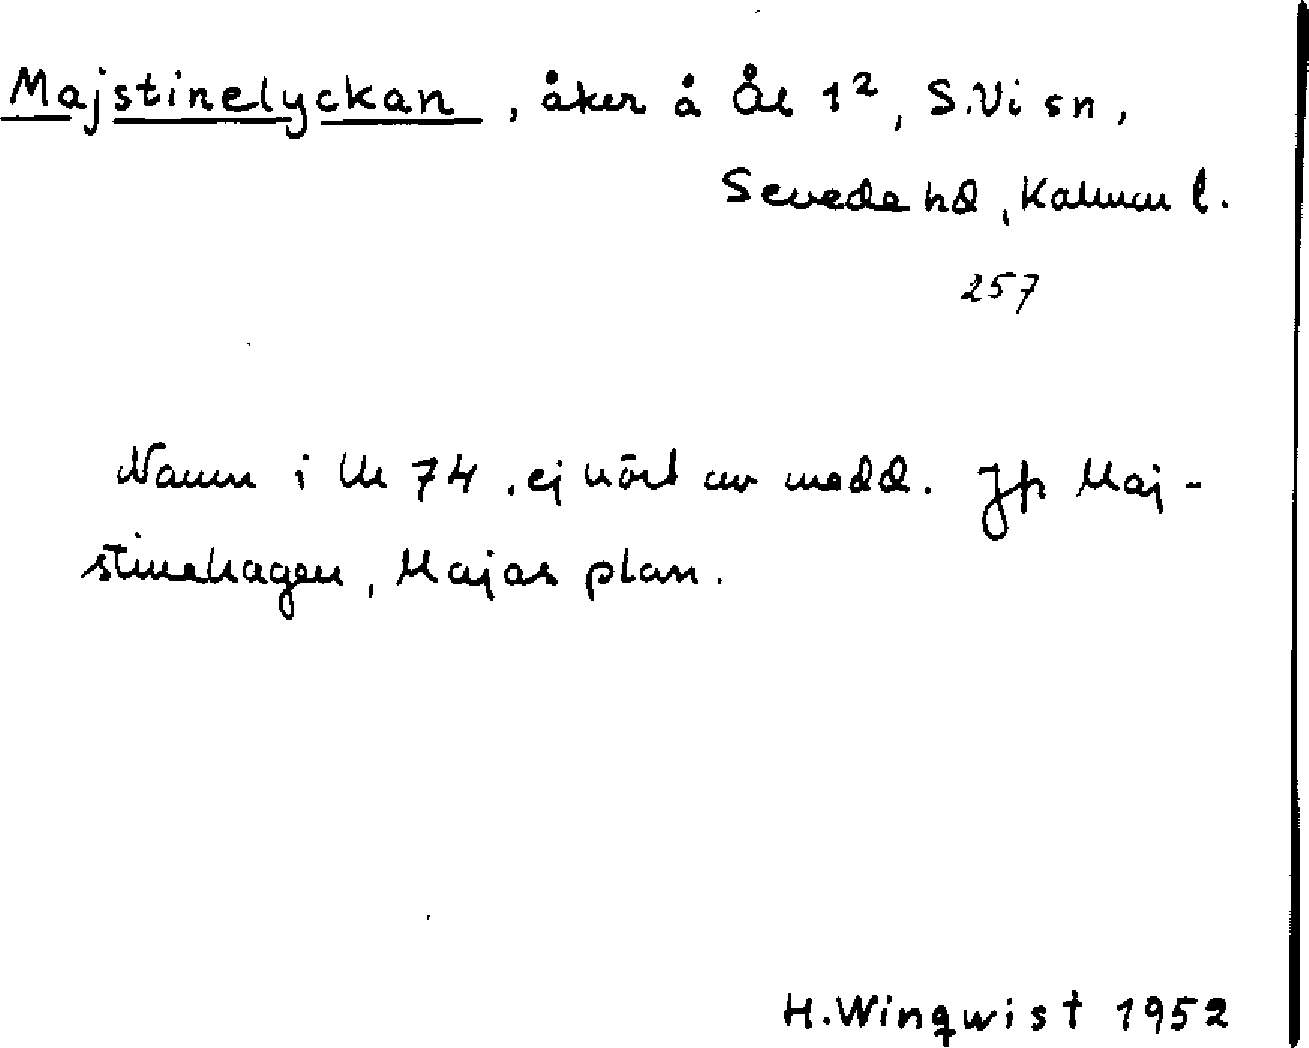 Majstinelyckan, åker å Ål 1², S.Vi sn,
Sevede hd, Kalmar l.
257
Namn i Um 74, ej hört av medd. Jfr Maj-
stinehagen, Majas plan.
H.Winqwist 1952